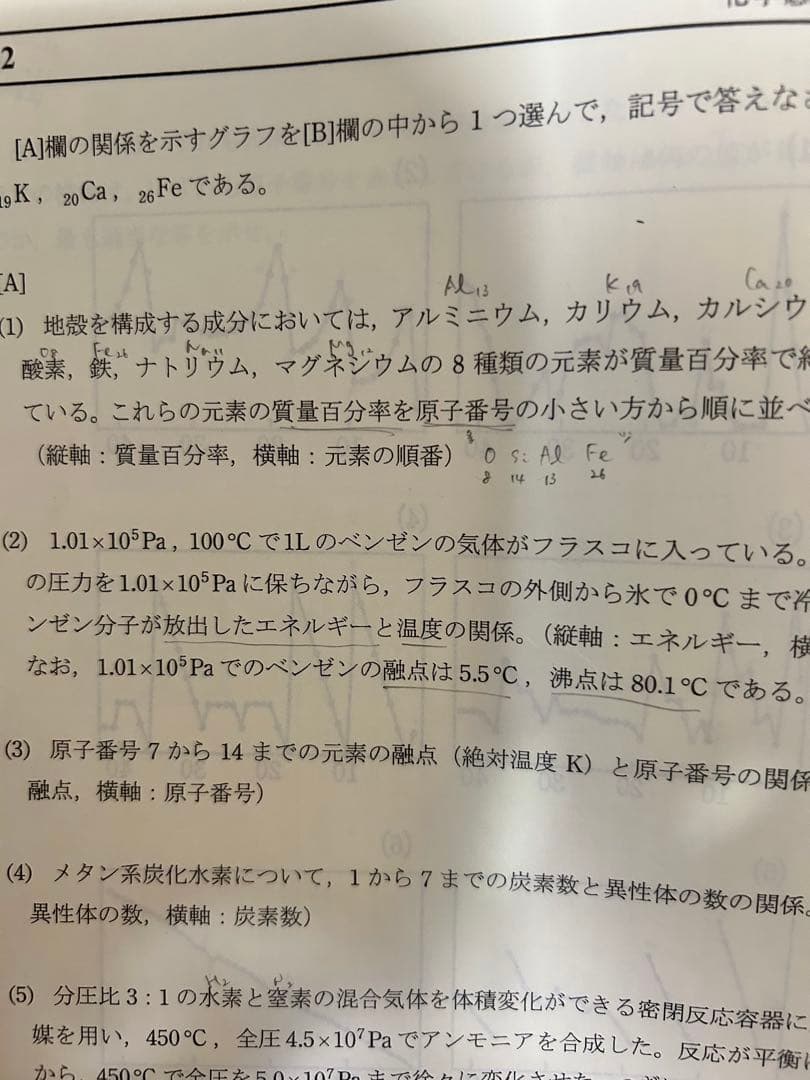 2
[A]欄の関係を示すグラフを[B]欄の中から1つ選んで，記号で答えな
₁₉K，₂₀Ca，₂₆Feである。
[A]
Al₁₃ K₁₉ Ca₂₀
(1) 地殻を構成する成分においては，アルミニウム，カリウム，カルシウ
O₈ Fe₂₆ Na₁₁ Mg₁₂
酸素，鉄，ナトリウム，マグネシウムの8種類の元素が質量百分率で
ている。これらの元素の質量百分率を原子番号の小さい方から順に並べ
（縦軸：質量百分率，横軸：元素の順番） O Si Al Fe
8 14 13 26
(2) 1.01×10⁵Pa，100℃で1Lのベンゼンの気体がフラスコに入っている。
の圧力を1.01×10⁵Paに保ちながら，フラスコの外側から氷で0℃まで冷
ンゼン分子が放出したエネルギーと温度の関係。（縦軸：エネルギー，横
なお，1.01×10⁵Paでのベンゼンの融点は5.5℃，沸点は80.1℃である。
(3) 原子番号7から14までの元素の融点（絶対温度K）と原子番号の関係
融点，横軸：原子番号）
(4) メタン系炭化水素について，1から7までの炭素数と異性体の数の関係。
異性体の数，横軸：炭素数）
H₂ N₂
(5) 分圧比3：1の水素と窒素の混合気体を体積変化ができる密閉反応容器に
媒を用い，450℃，全圧4.5×10⁷Paでアンモニアを合成した。反応が平衡に
から，450℃で全圧を5.0×10⁷Paまで徐々に変化させた